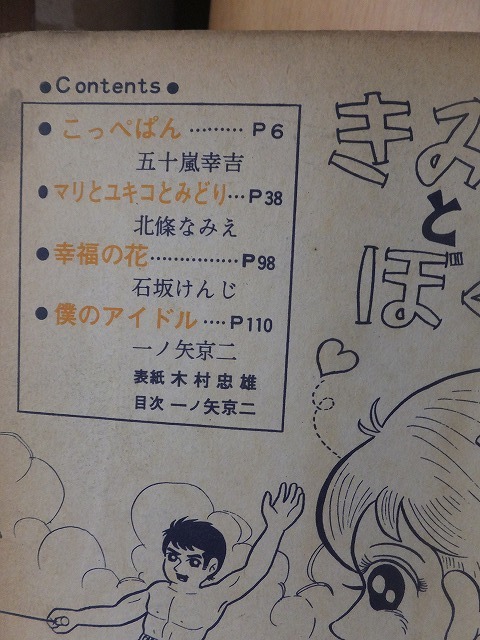 ●Contents●
●こっぺぱん………P6
五十嵐幸吉
●マリとユキコとみどり…P38
北條なみえ
●幸福の花……………P98
石坂けんじ
●僕のアイドル….P110
一ノ矢京二
表紙 木村忠雄
目次 一ノ矢京二
きみ
と
ぼく